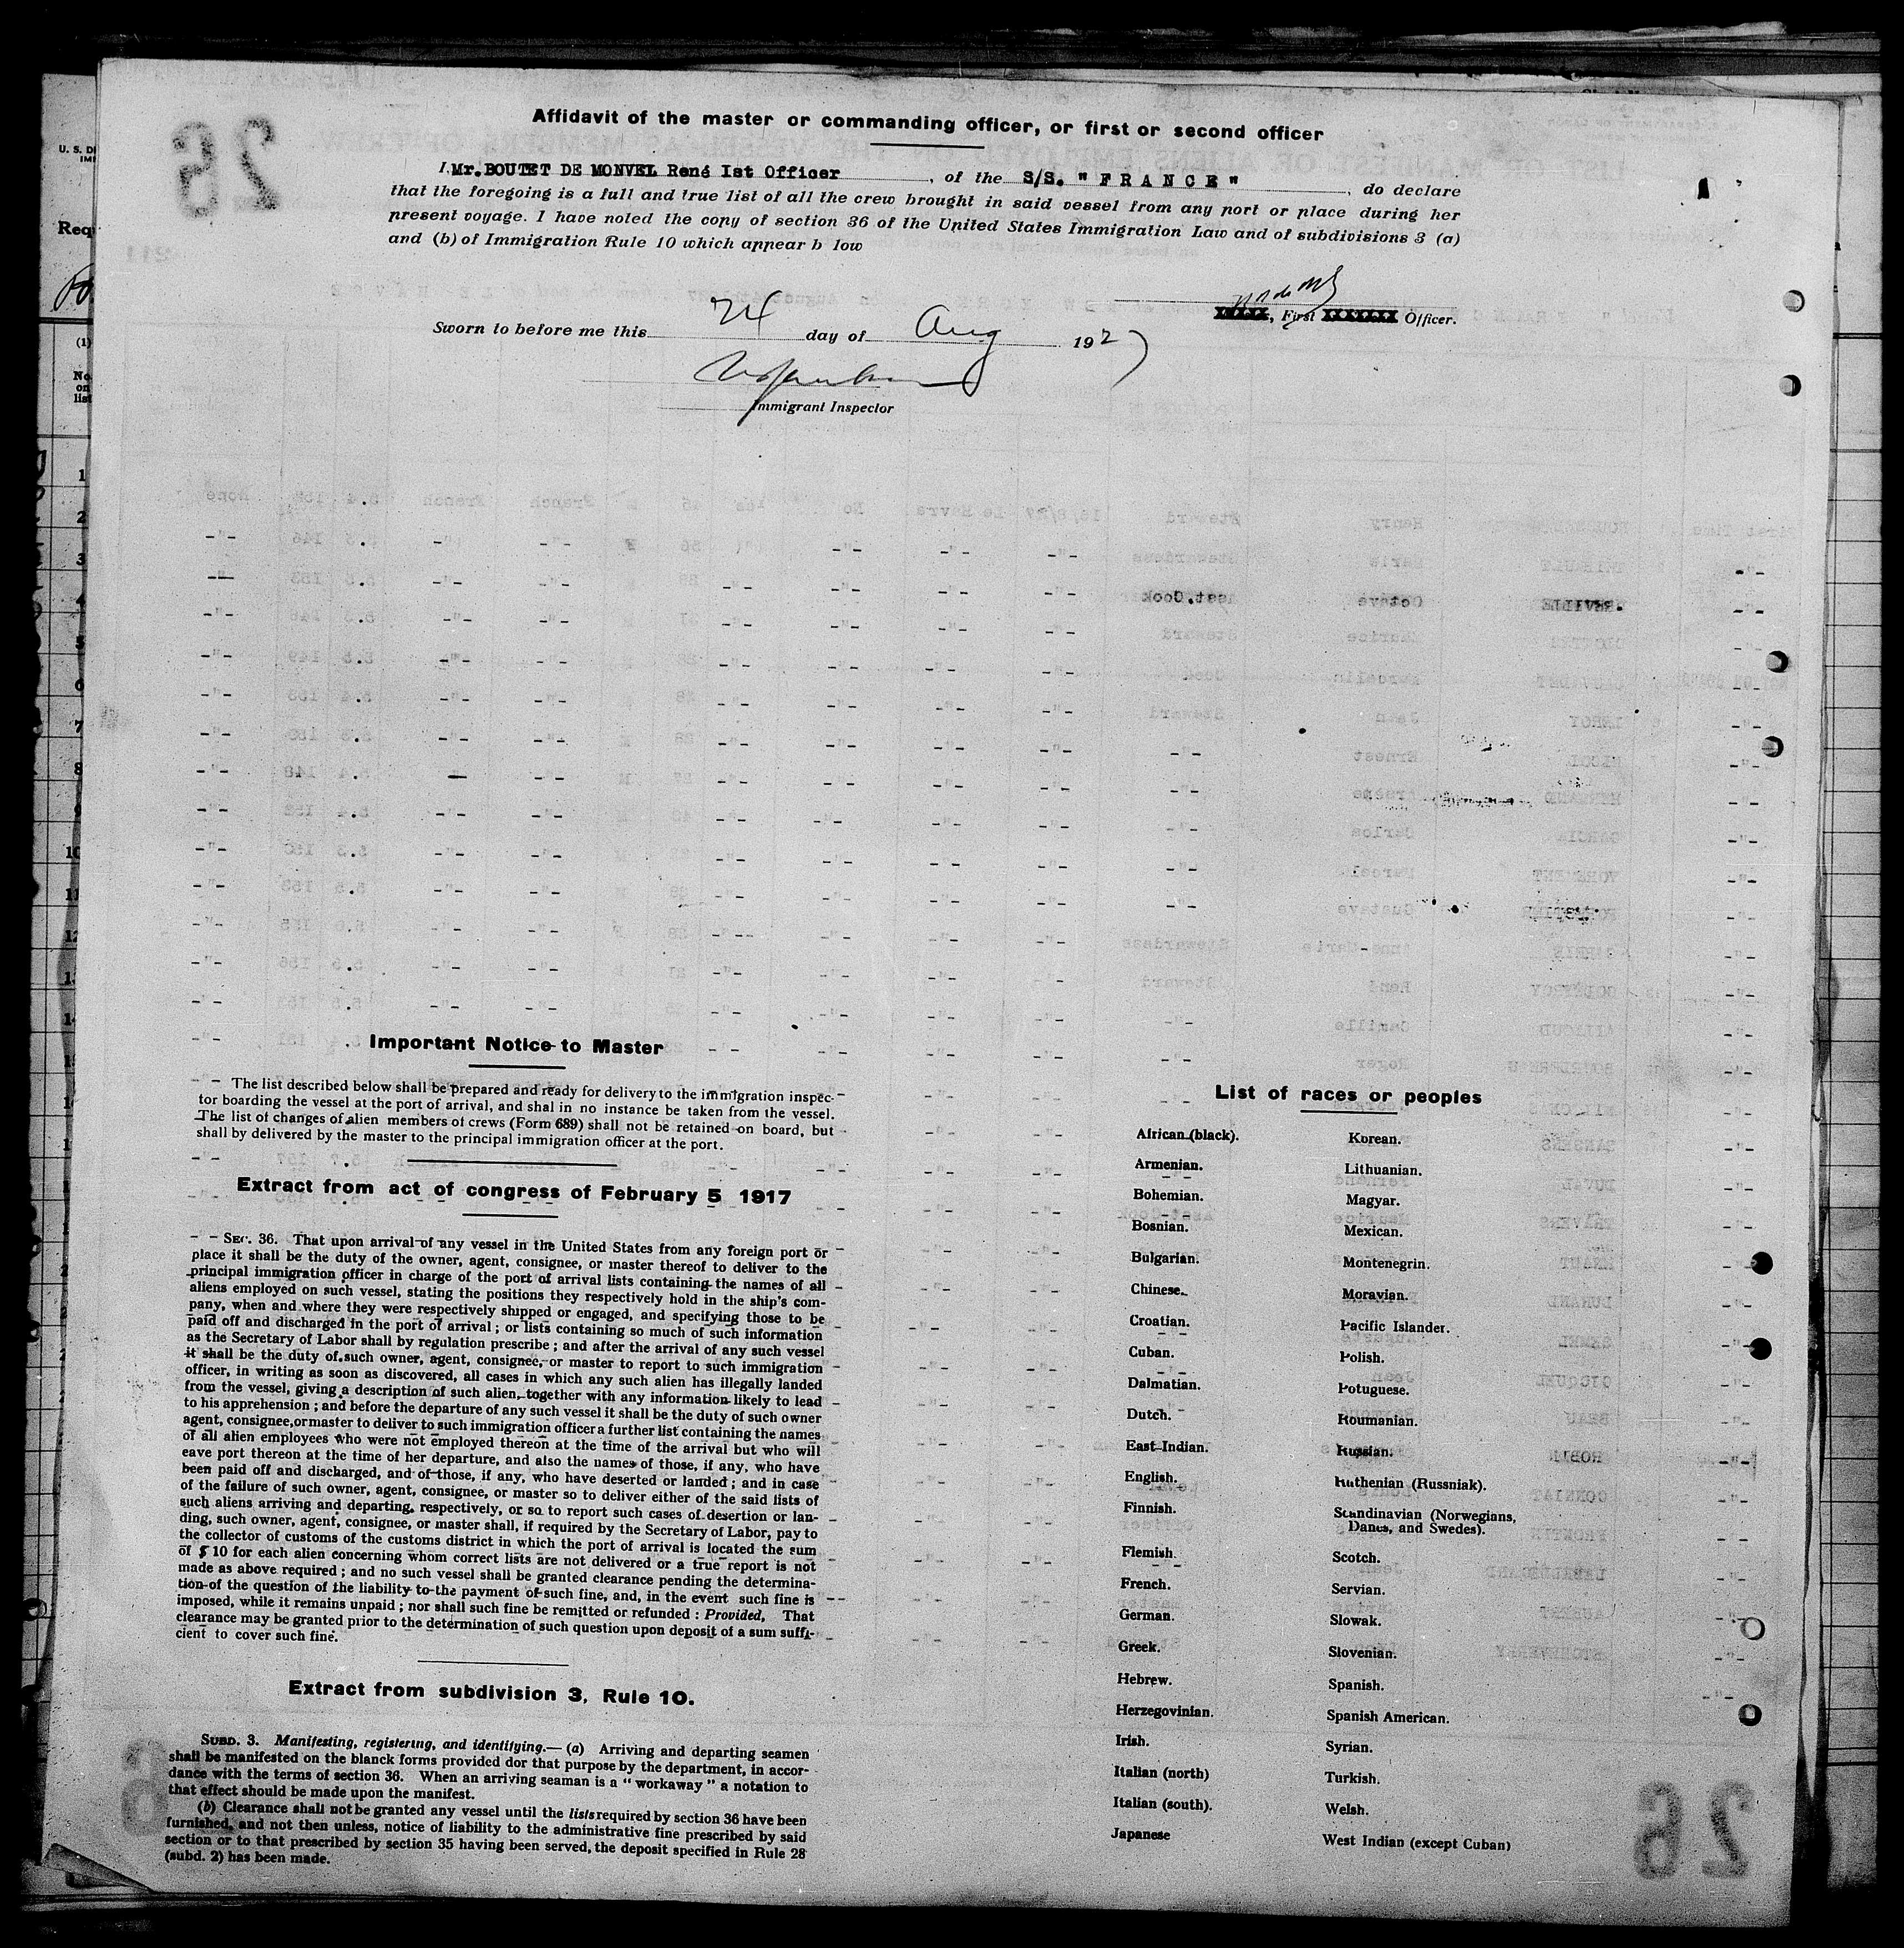 Affidavit of the master or commanding officer, or first or second officer
I, Mr. BOUTET DE MONVEL René Ist Officer, of the S/S. " F R A N C E ", do declare
that the foregoing is a full and true list of all the crew brought in said vessel from any port or place during her
present voyage. I have noted the copy of section 36 of the United States Immigration Law and of subdivisions 3 (a)
and (b) of Immigration Rule 10 which appear b low
XXXXX, First XXXXXXX Officer.
Sworn to before me this 24 day of Aug 1927
Immigrant Inspector
Important Notice to Master
The list described below shall be prepared and ready for delivery to the immigration inspec-
tor boarding the vessel at the port of arrival, and shal in no instance be taken from the vessel.
The list of changes of alien members of crews (Form 689) shall not be retained on board, but
shall by delivered by the master to the principal immigration officer at the port.
Extract from act of congress of February 5 1917
SEC. 36. That upon arrival of any vessel in the United States from any foreign port or
place it shall be the duty of the owner, agent, consignee, or master thereof to deliver to the
principal immigration officer in charge of the port of arrival lists containing the names of all
aliens employed on such vessel, stating the positions they respectively hold in the ship's com-
pany, when and where they were respectively shipped or engaged, and specifying those to be
paid off and discharged in the port of arrival ; or lists containing so much of such information
as the Secretary of Labor shall by regulation prescribe ; and after the arrival of any such vessel
it shall be the duty of such owner, agent, consignee, or master to report to such immigration
officer, in writing as soon as discovered, all cases in which any such alien has illegally landed
from the vessel, giving a description of such alien, together with any information likely to lead
to his apprehension ; and before the departure of any such vessel it shall be the duty of such owner
agent, consignee, or master to deliver to such immigration officer a further list containing the names
of all alien employees who were not employed thereon at the time of the arrival but who will
eave port thereon at the time of her departure, and also the names of those, if any, who have
been paid off and discharged, and of those, if any, who have deserted or landed ; and in case
of the failure of such owner, agent, consignee, or master so to deliver either of the said lists of
such aliens arriving and departing, respectively, or so to report such cases of desertion or lan-
ding, such owner, agent, consignee, or master shall, if required by the Secretary of Labor, pay to
the collector of customs of the customs district in which the port of arrival is located the sum
of $ 10 for each alien concerning whom correct lists are not delivered or a true report is not
made as above required ; and no such vessel shall be granted clearance pending the determina-
tion of the question of the liability to the payment of such fine, and, in the event such fine is
imposed, while it remains unpaid ; nor shall such fine be remitted or refunded : Provided, That
clearance may be granted prior to the determination of such question upon deposit of a sum suffi-
cient to cover such fine.
Extract from subdivision 3, Rule 10.
SUBD. 3. Manifesting, registering, and identifying.— (a) Arriving and departing seamen
shall be manifested on the blanck forms provided dor that purpose by the department, in accor-
dance with the terms of section 36. When an arriving seaman is a " workaway " a notation to
that effect should be made upon the manifest.
(b) Clearance shall not be granted any vessel until the lists required by section 36 have been
furnished, and not then unless, notice of liability to the administrative fine prescribed by said
section or to that prescribed by section 35 having been served, the deposit specified in Rule 28
(subd. 2) has been made.
List of races or peoples
African (black).
Armenian.
Bohemian.
Bosnian.
Bulgarian.
Chinese.
Croatian.
Cuban.
Dalmatian.
Dutch.
East Indian.
English.
Finnish.
Flemish.
French.
German.
Greek.
Hebrew.
Herzegovinian.
Irish.
Italian (north)
Italian (south).
Japanese
Korean.
Lithuanian.
Magyar.
Mexican.
Montenegrin.
Moravian.
Pacific Islander.
Polish.
Potuguese.
Roumanian.
Russian.
Ruthenian (Russniak).
Scandinavian (Norwegians,
Danes, and Swedes).
Scotch.
Servian.
Slowak.
Slovenian.
Spanish.
Spanish American.
Syrian.
Turkish.
Welsh.
West Indian (except Cuban)